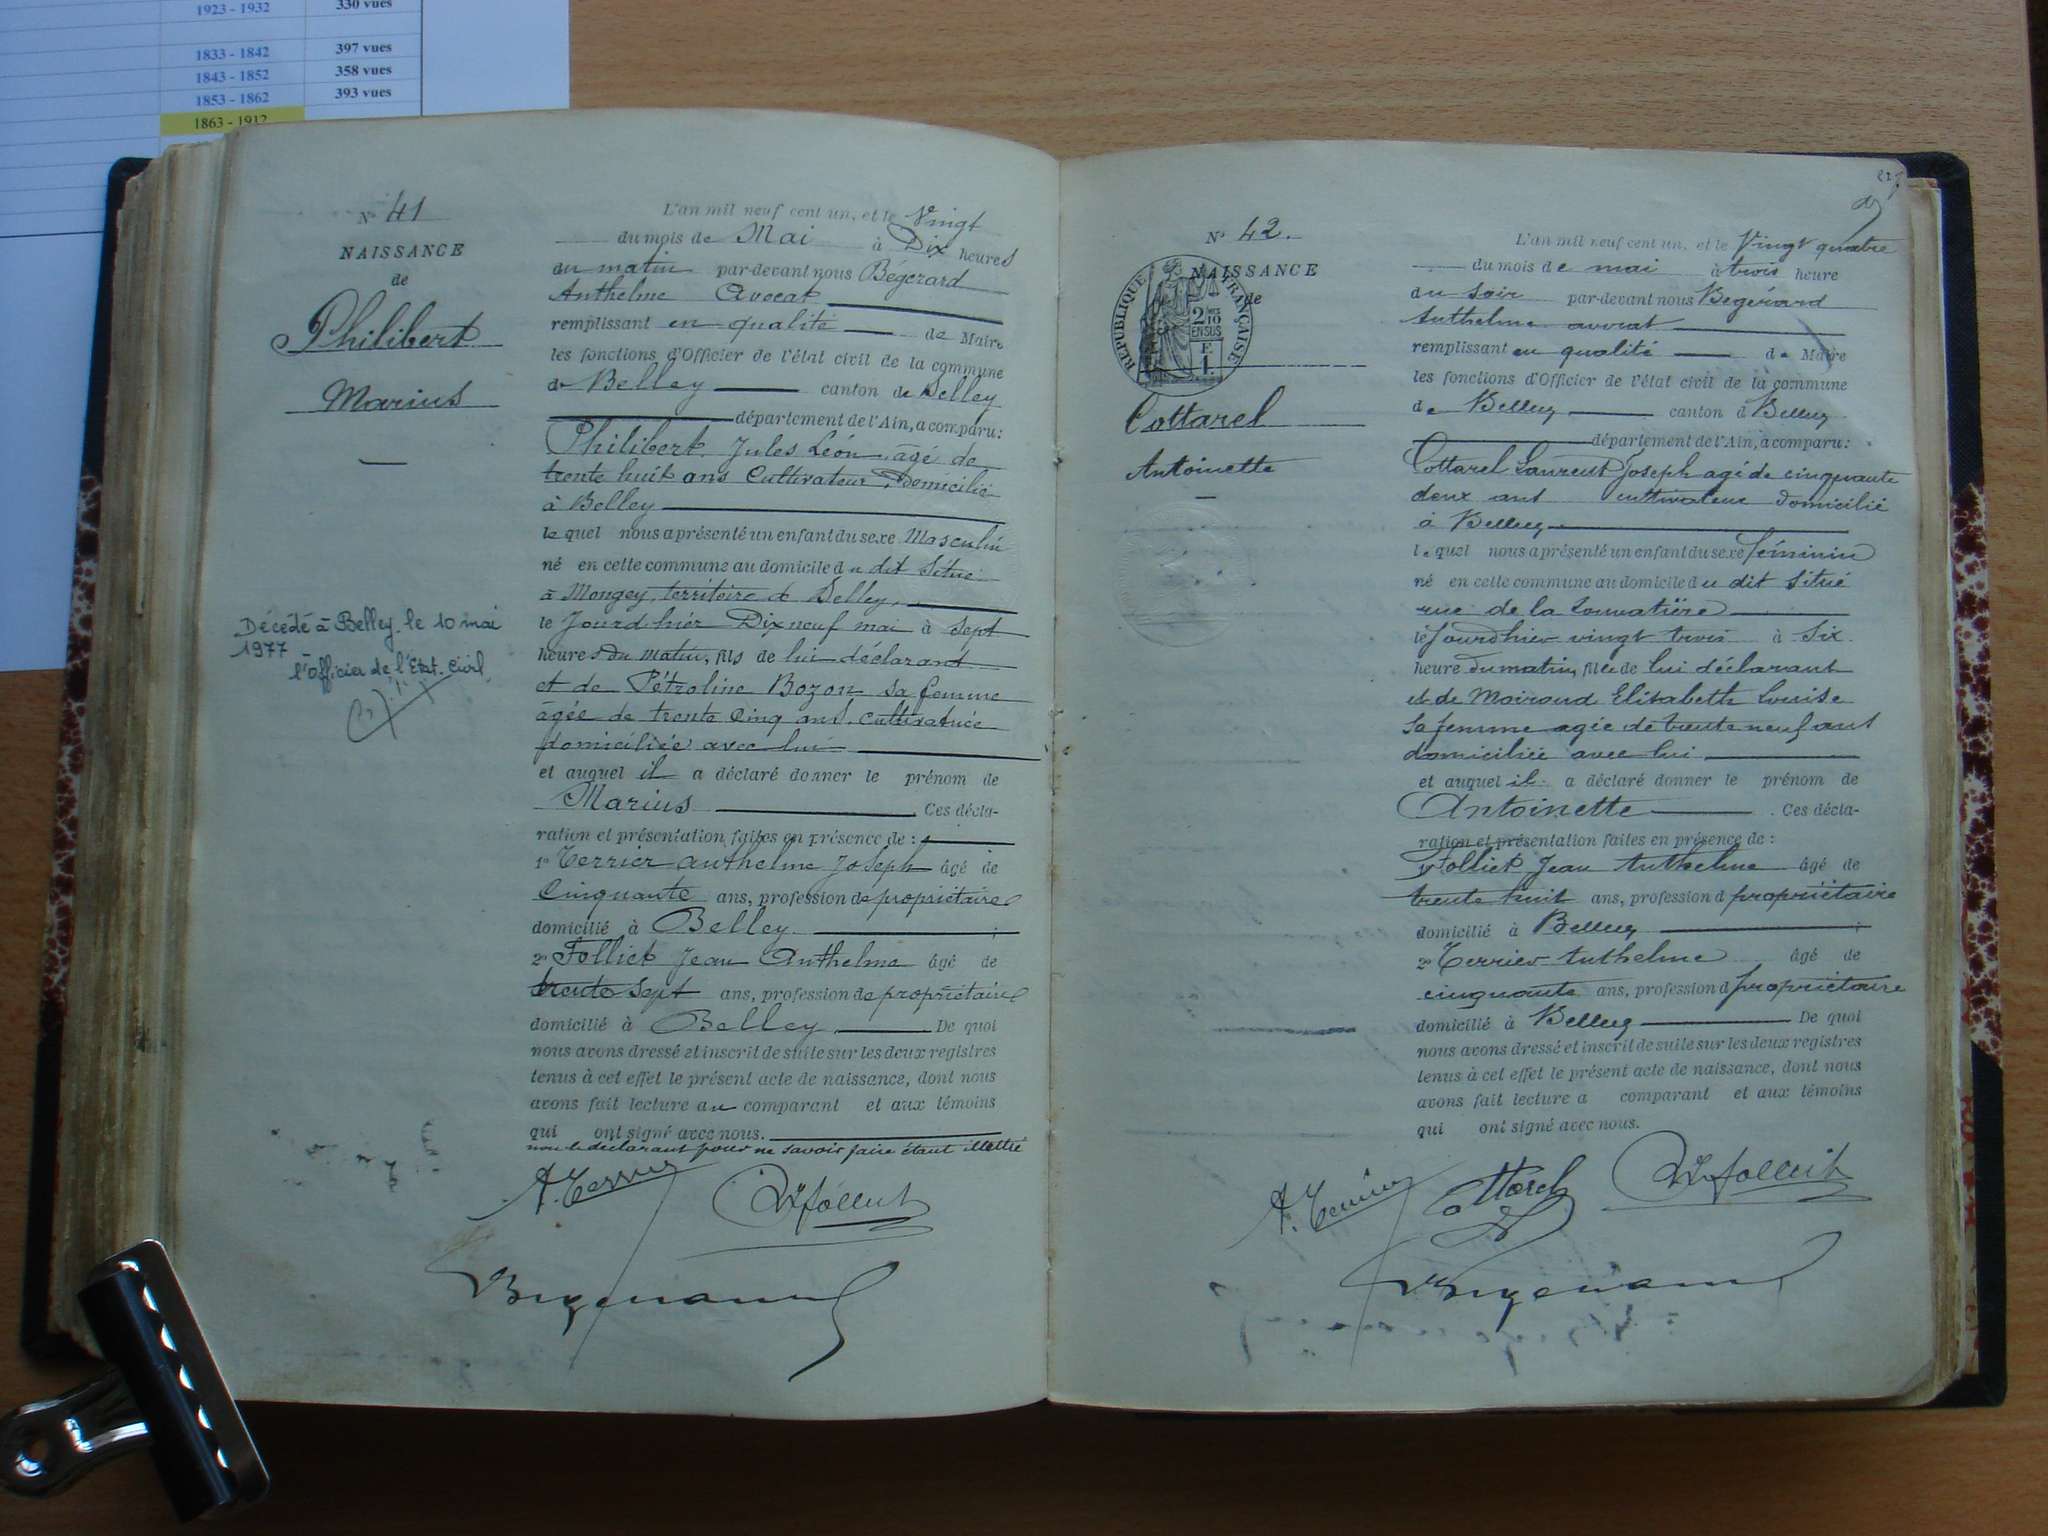 1923 - 1932 330 vues
1833 - 1842 397 vues
1843 - 1852 358 vues
1853 - 1862 393 vues
1863 - 1912
N° 41
NAISSANCE
de
Philibert
Marius
Décédé à Belley le 10 mai
1977
l'officier de l'Etat-Civil
L'an mil neuf cent un, et le Vingt
du mois de Mai à Dix heures
du matin par-devant nous Bégerard
Anthelme Avocat
remplissant en qualité de Maire
les fonctions d'Officier de l'état civil de la commune
de Belley canton de Belley
département de l'Ain, a comparu:
Philibert Jules Léon âgé de
trente huit ans Cultivateur, Domicilié
à Belley
le quel nous a présenté un enfant du sexe Masculin
né en cette commune au domicile du dit situé
à Mongey, territoire de Belley,
le Jourd'hier Dix neuf mai à sept
heures du matin, fils de lui déclarant
et de Pétroline Bozon sa femme
âgée de trente cinq ans cultivatrice
domiciliée avec lui
et auquel il a déclaré donner le prénom de
Marius Ces décla-
ration et présentation faites en présence de :
1° Terrier Anthelme Joseph âgé de
Cinquante ans, profession de propriétaire
domicilié à Belley ;
2° Folliet Jean Anthelme âgé de
trente sept ans, profession de propriétaire
domicilié à Belley De quoi
nous avons dressé et inscrit de suite sur les deux registres
tenus à cet effet le présent acte de naissance, dont nous
avons fait lecture au comparant et aux témoins
qui ont signé avec nous.
non le déclarant pour ne savoir faire étant illettré
A. Terrier Folliet
Bégerard
N° 42.
NAISSANCE
de
RÉPUBLIQUE FRANÇAISE
2/10
EN SUS
E
1
Cottarel
Antoinette
L'an mil neuf cent un, et le Vingt quatre
du mois de mai à trois heure
du soir par-devant nous Bégerard
Anthelme avocat
remplissant en qualité de Maire
les fonctions d'Officier de l'état civil de la commune
de Belley canton d Belley
département de l'Ain, a comparu:
Cottarel Laurent Joseph agé de cinquante
deux ans cultivateur domicilié
à Belley
le quel nous a présenté un enfant du sexe féminin
né en cette commune au domicile du dit situé
rue de la
le Jourdhier vingt trois à six
heure du matin, fille de lui déclarant
et de Moiroud Elisabeth Louise
sa femme agée de trente neuf ans
domiciliée avec lui
et auquel il a déclaré donner le prénom de
Antoinette . Ces décla-
ration et présentation faites en présence de :
1° Folliet Jean Anthelme âgé de
trente huit ans, profession d propriétaire
domicilié à Belley ;
2° Terrier Anthelme âgé de
cinquante ans, profession d propriétaire
domicilié à Belley De quoi
nous avons dressé et inscrit de suite sur les deux registres
tenus à cet effet le présent acte de naissance, dont nous
avons fait lecture a comparant et aux témoins
qui ont signé avec nous.
A. Terrier Cottarel Folliet
Bégerard